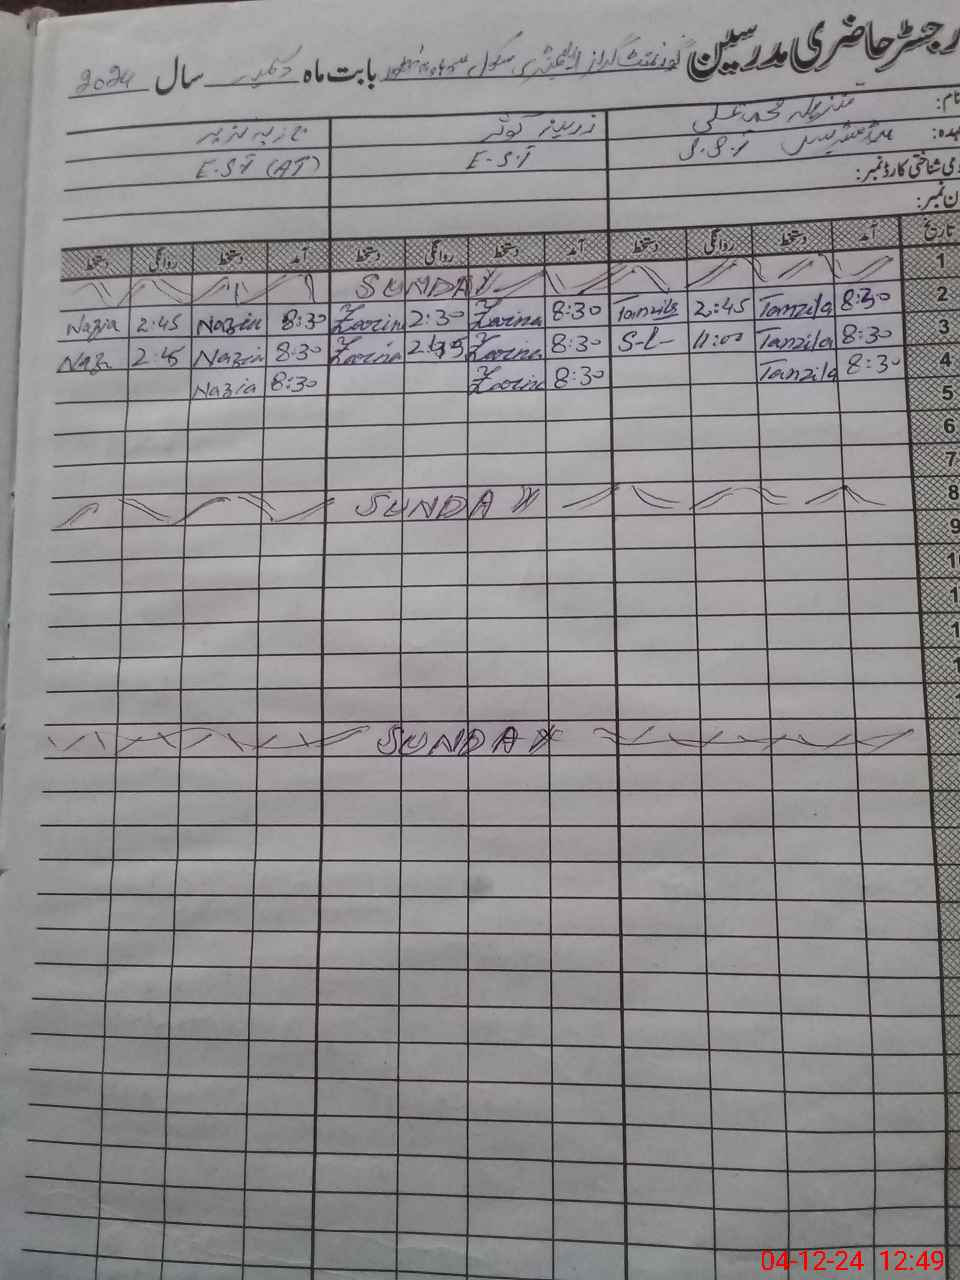 رجسٹر حاضری مدرسین گورنمنٹ گرلز ایلیمنٹری سکول بابت ماہ دسمبر سال 2024
نام: تنزیلہ محمد علی زرینہ کوثر نازیہ نذیر
عہدہ: ہیڈمسٹریس E.S.T E.S.T (AT)
قومی شناختی کارڈ نمبر:
فون نمبر:
تاریخ آمد دستخط روانگی دستخط آمد دستخط روانگی دستخط آمد دستخط روانگی دستخط
1 SUNDAY
2 8:30 Tanzila 2:45 Tanzila 8:30 Zarina 2:30 Zarina 8:30 Nazia 2:45 Nazia
3 8:30 Tanzila 11:00 S-L- 8:30 Zarina Zarina 8:30 Nazia 2:45
4 8:30 Tanzila 8:30 Zarina 8:30 Nazia
5
6
7
8 SUNDAY
9
SUNDAY
04-12-24 12:49